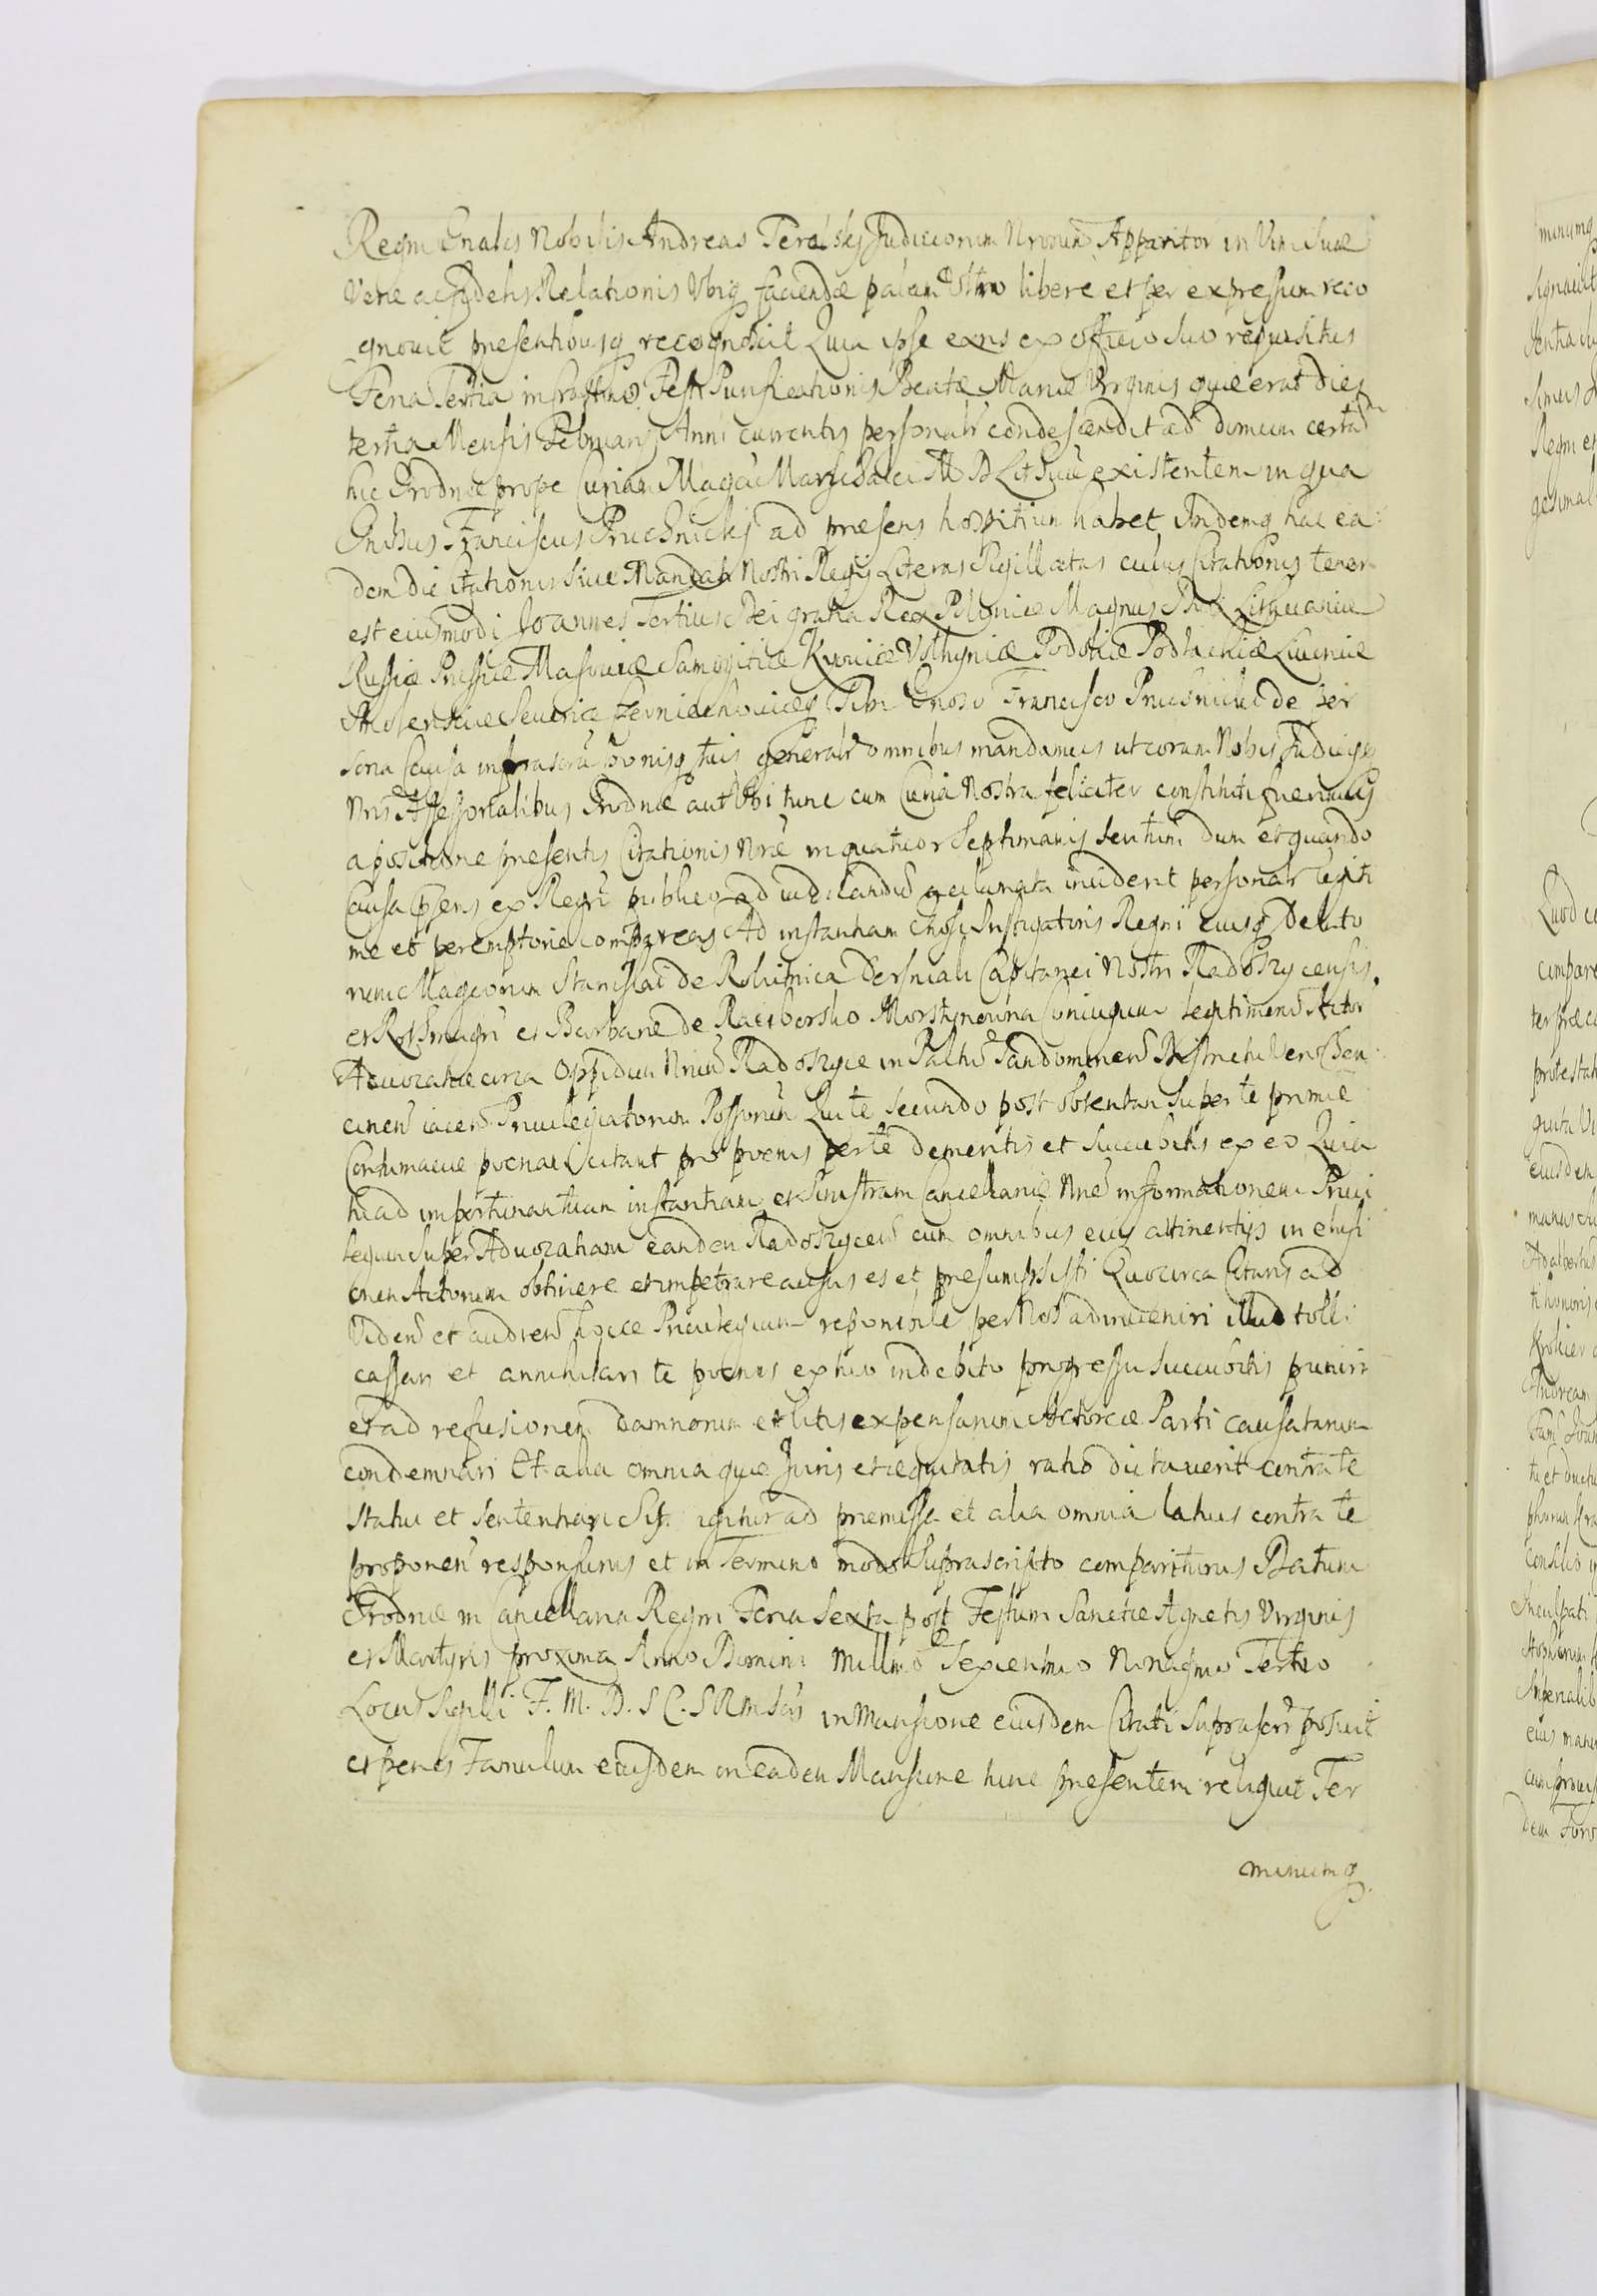 Regni Gnalis Nobilis Andreas Judiciorum Nrorum Apparitor in Vim suæ
Veræ ac fidelis Relationis Ubiq faciendæ palam Ultro libere et per expressum reco
gnovit presentibusq recognoscit Quia ipse exns ex officio suo requisitus
Feria Tertia in Crastino Festi Purificationis Beatæ Mariæ Virginis quæ erat dies
tertia Mensis Februarij Anni currentis personalr condescendit ad domum certam
hic Grodnæ prope Curiam Magci Marschalci M D Lithuæ existentem in qua
Gnosus Franciscus Pruchnickj ad præsens hospitium habet Indemq hac ea
dem die Citationis sive Mandati Nostri Regij Literas Sigillatas cuius Citationis tenor
est eiusmodi Joannes Tertius Dei gratia Rex Poloniæ Magnus Dux Lithuaniæ
Russiæ Prussiæ Masoviæ Samogitiæ Kijoviæ Volhyniæ Podoliæ Podlachiæ Livoniæ
Smolensciæ Severiæ Czernichoviæq Tibi Gnoso Francisco Pruchnicki de per
sona causa infrascra bonisq tuis generalr omnibus mandamus ut coram Nobis Judicijsq
Nris Assessorialibus Grodnæ aut Ubi tunc cum Curia Nostra feliciter constituti fuerimus
a positione presentis Citationis Nræ in quatuor Septimanis seu tum dum et quando
Causa præns ex Regro publico ad iudicandum acclamata inciderit personar legiti
me et peremptorie compareas Ad instantiam Gnosi Instigatoris Regni eiusq Delato
rum Magcorum Stanislai de Dersniak Capitanei Nostri Radoszycensis
et Rothmagri et Barbaræ de Raciborsko Morstynowna Coniugum legitimorum Actor
Advocatiæ circa Oppidum Nrum Radoszyce in Palnu Sandomirien Districtu vero Chen
cinen iacen Privilegiatorum Possorum Qui te secundo post obtentam super te primæ
Contumaciæ poenam Citant pro poenis per te demeritis et succubitis ex eo Quia
tu ad importunam tuam instantiam et sinistram Cancellariæ Nræ informationem Privi
legium super Advocatiam eandem Radoszycen cum omnibus eius attinentijs in elusi
onem Actorum obtinere et impetrare ausus es et presumpsisti Quocirca Citaris ad
Viden et audien hocce Privilegium reponi per Nos adinveniri illud tolli
cassari et annihilari te poenis ex hoc indebito progressu succubitis puniri
et ad refusionem damnorum et litis expensarum Actoreæ Parti causatarum
condemnari Et alia omnia quæ Juris et æquitatis ratio dictaverit contra te
statui et sententiari Sis igitur ad premissa et alia omnia latius contra te
proponen responsurus et in Termino modo suprascripto compariturus Datum
Grodnæ in Cancellaria Regni Feria Sexta post Festum Sanctæ Agnetis Virginis
et Martyris proxima Anno Domini Millmo Sexcentmo Nonagmo Tertio
Locus Sigilli F. M. D. S C. S R Mtis in Mansione eiusdem Citati suprascri posuit
et penes Famulum eiusdem in eadem Mansione tunc presentem reliquit Ter
minumq